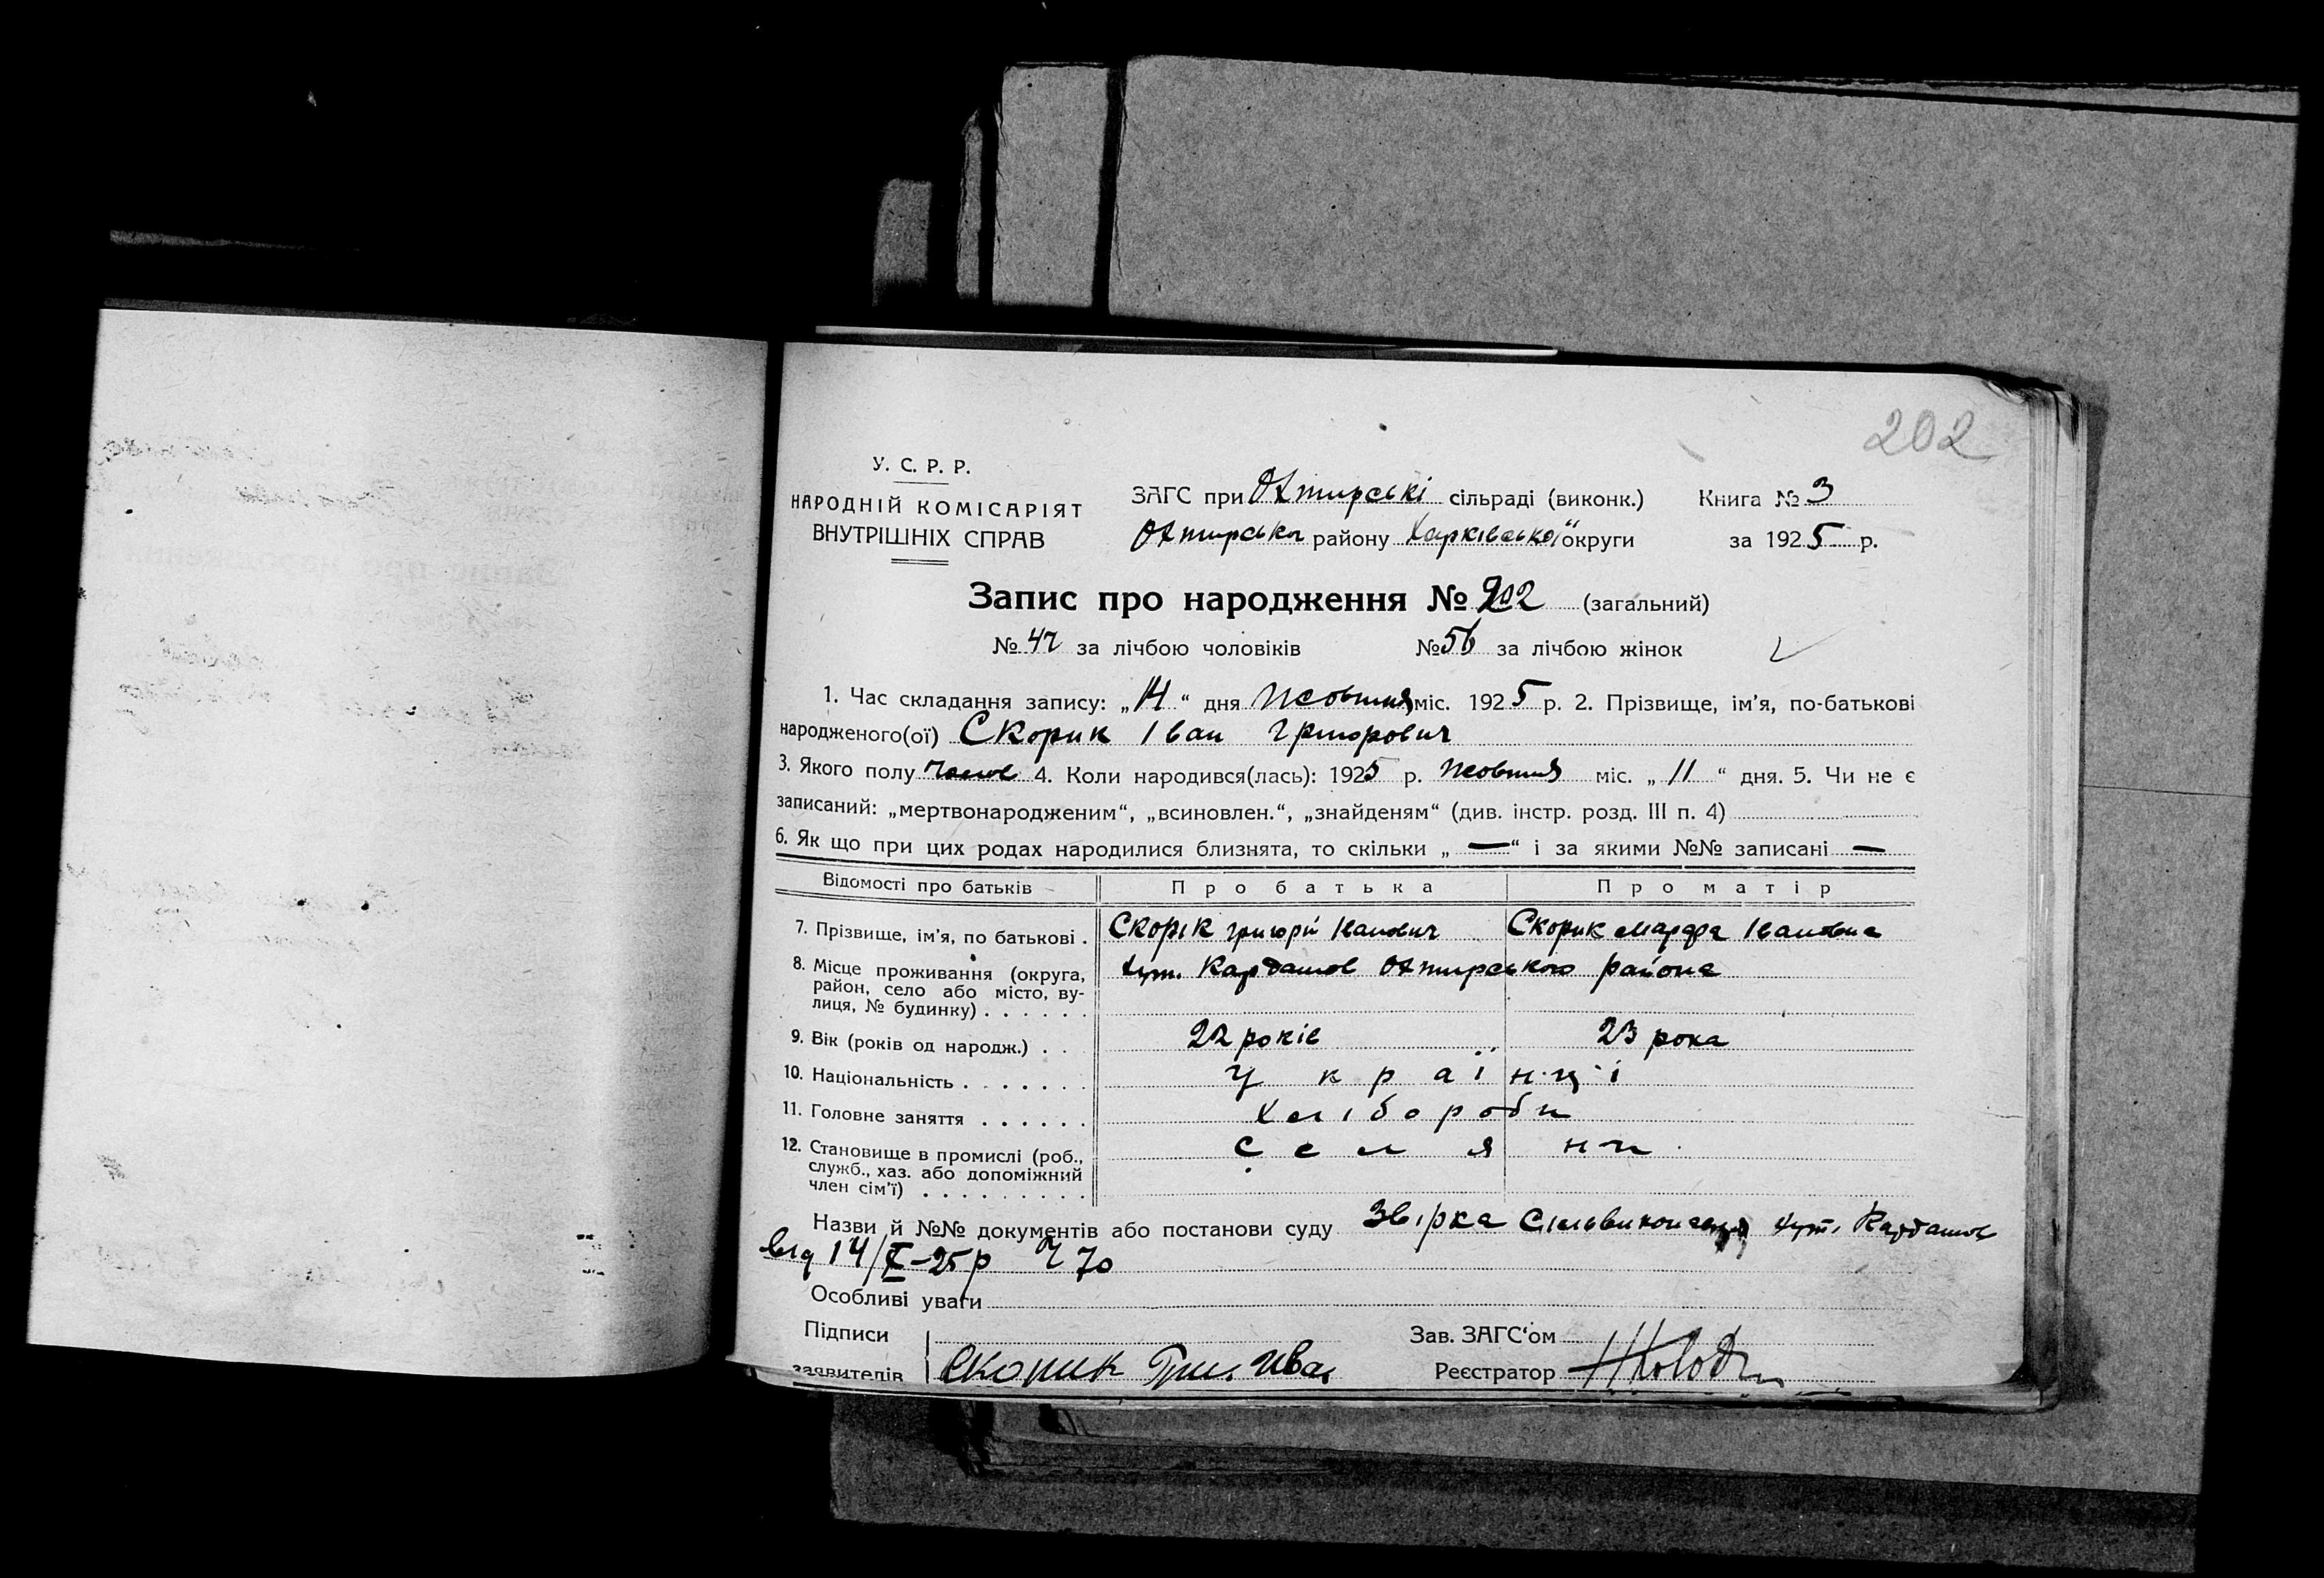 202
У. С. Р. Р.
НАРОДНІЙ КОМІСАРІЯТ
ВНУТРІШНІХ СПРАВ
ЗАГС при Охтирські сільраді (виконк.) Книга № 3
Охтирська району Харківської округи за 1925 р.
Запис про народження № 202 (загальний)
№ 47 за лічбою чоловіків № 56 за лічбою жінок
1. Час складання запису: „14“ дня Жовтня міс. 1925 р. 2. Прізвище, ім’я, по-батькові
народженого(ої) Скорик Іван Григорович
3. Якого полу Чолов 4. Коли народився(лась): 1925 р. жовтня міс. „11“ дня. 5. Чи не є
записаний: „мертвонародженим“, „всиновлен.“, „знайденям“ (див. інстр. розд. III п. 4)
6. Як що при цих родах народилися близнята, то скільки „—“ і за якими №№ записані —
Відомості про батьків Про батька Про матір
7. Прізвище, ім’я, по батькові . Скорік Григорій Іванович Скорик Марфа Івановна
8. Місце проживання (округа, хут. Кардашов Охтирського района
район, село або місто, ву-
лиця, № будинку) . . . . . .
9. Вік (років од народж.) . . 22 років 23 рока
10. Національність . . . . . . . Українці
11. Головне заняття . . . . . . Хлібороби
12. Становище в промислі (роб., Селяни
служб., хаз. або допоміжний
член сім’ї) . . . . . . . . .
Назви й №№ документів або постанови суду Звірка хут. Кардашов
від 14/X-25 р 70
Особливі уваги
Підписи Зав. ЗАГС‘ом
заявителів Скорик Григ Ива Реєстратор